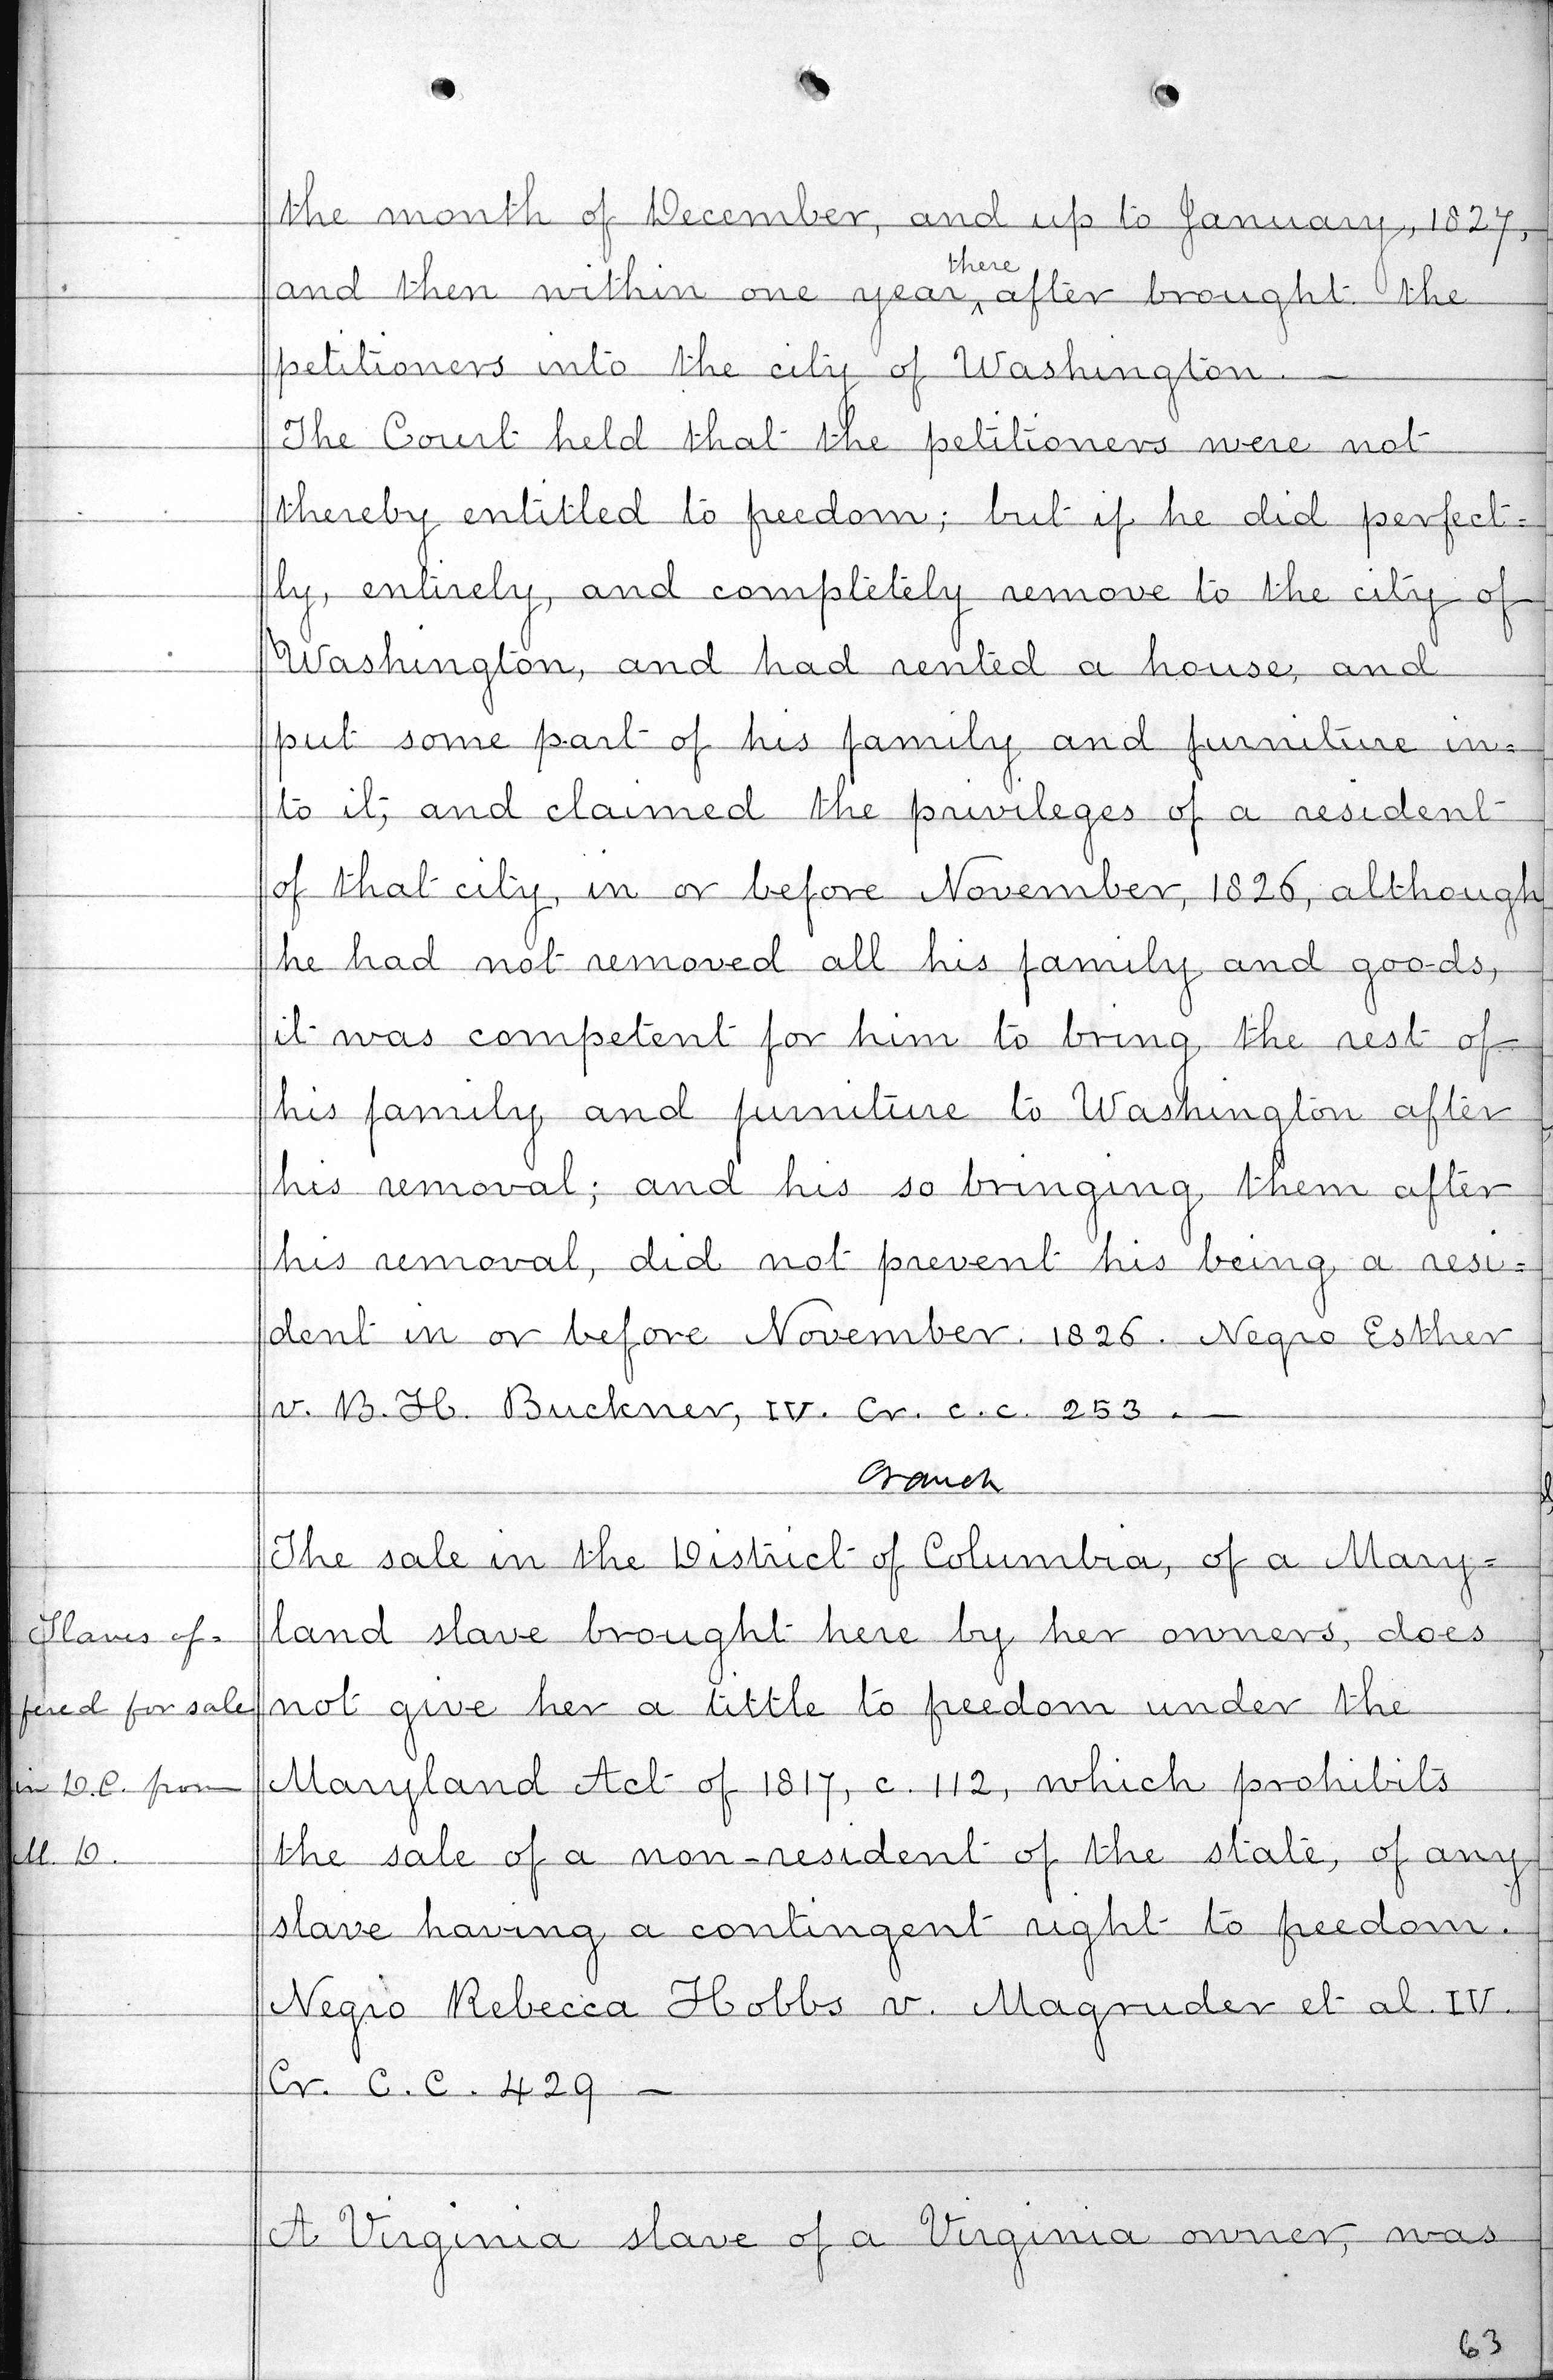 the month of December, and up to January, 1827,
there
and then within one year ‸ after brought the
petitioners into the city of Washington. —
The Court held that the petitioners were not
thereby entitled to freedom; but if he did perfect=
ly, entirely, and completely remove to the city of
Washington, and had rented a house, and
put some part of his family and furniture in=
to it, and claimed the privileges of a resident
of that city, in or before November, 1826, although
he had not removed all his family and goods,
it was competent for him to bring the rest of
his family and furniture to Washington after
his removal; and his so bringing them after
his removal, did not prevent his being a resi=
dent in or before November. 1826. Negro Esther
v. B. H. Buckner, IV. Cr. c.c. 253. —
Cranch
The sale in the District of Columbia, of a Mary=
Slaves of=
land slave brought here by her owners, does
fered for sale
not give her a tittle to freedom under the
in D.C. from
Maryland Act of 1817, c. 112, which prohibits
M. D.
the sale of a non-resident of the state, of any
slave having a contingent right to freedom.
Negro Rebecca Hobbs v. Magruder et al. IV.
Cr. C.C. 429 —
A Virginia slave of a Virginia owner, was
63